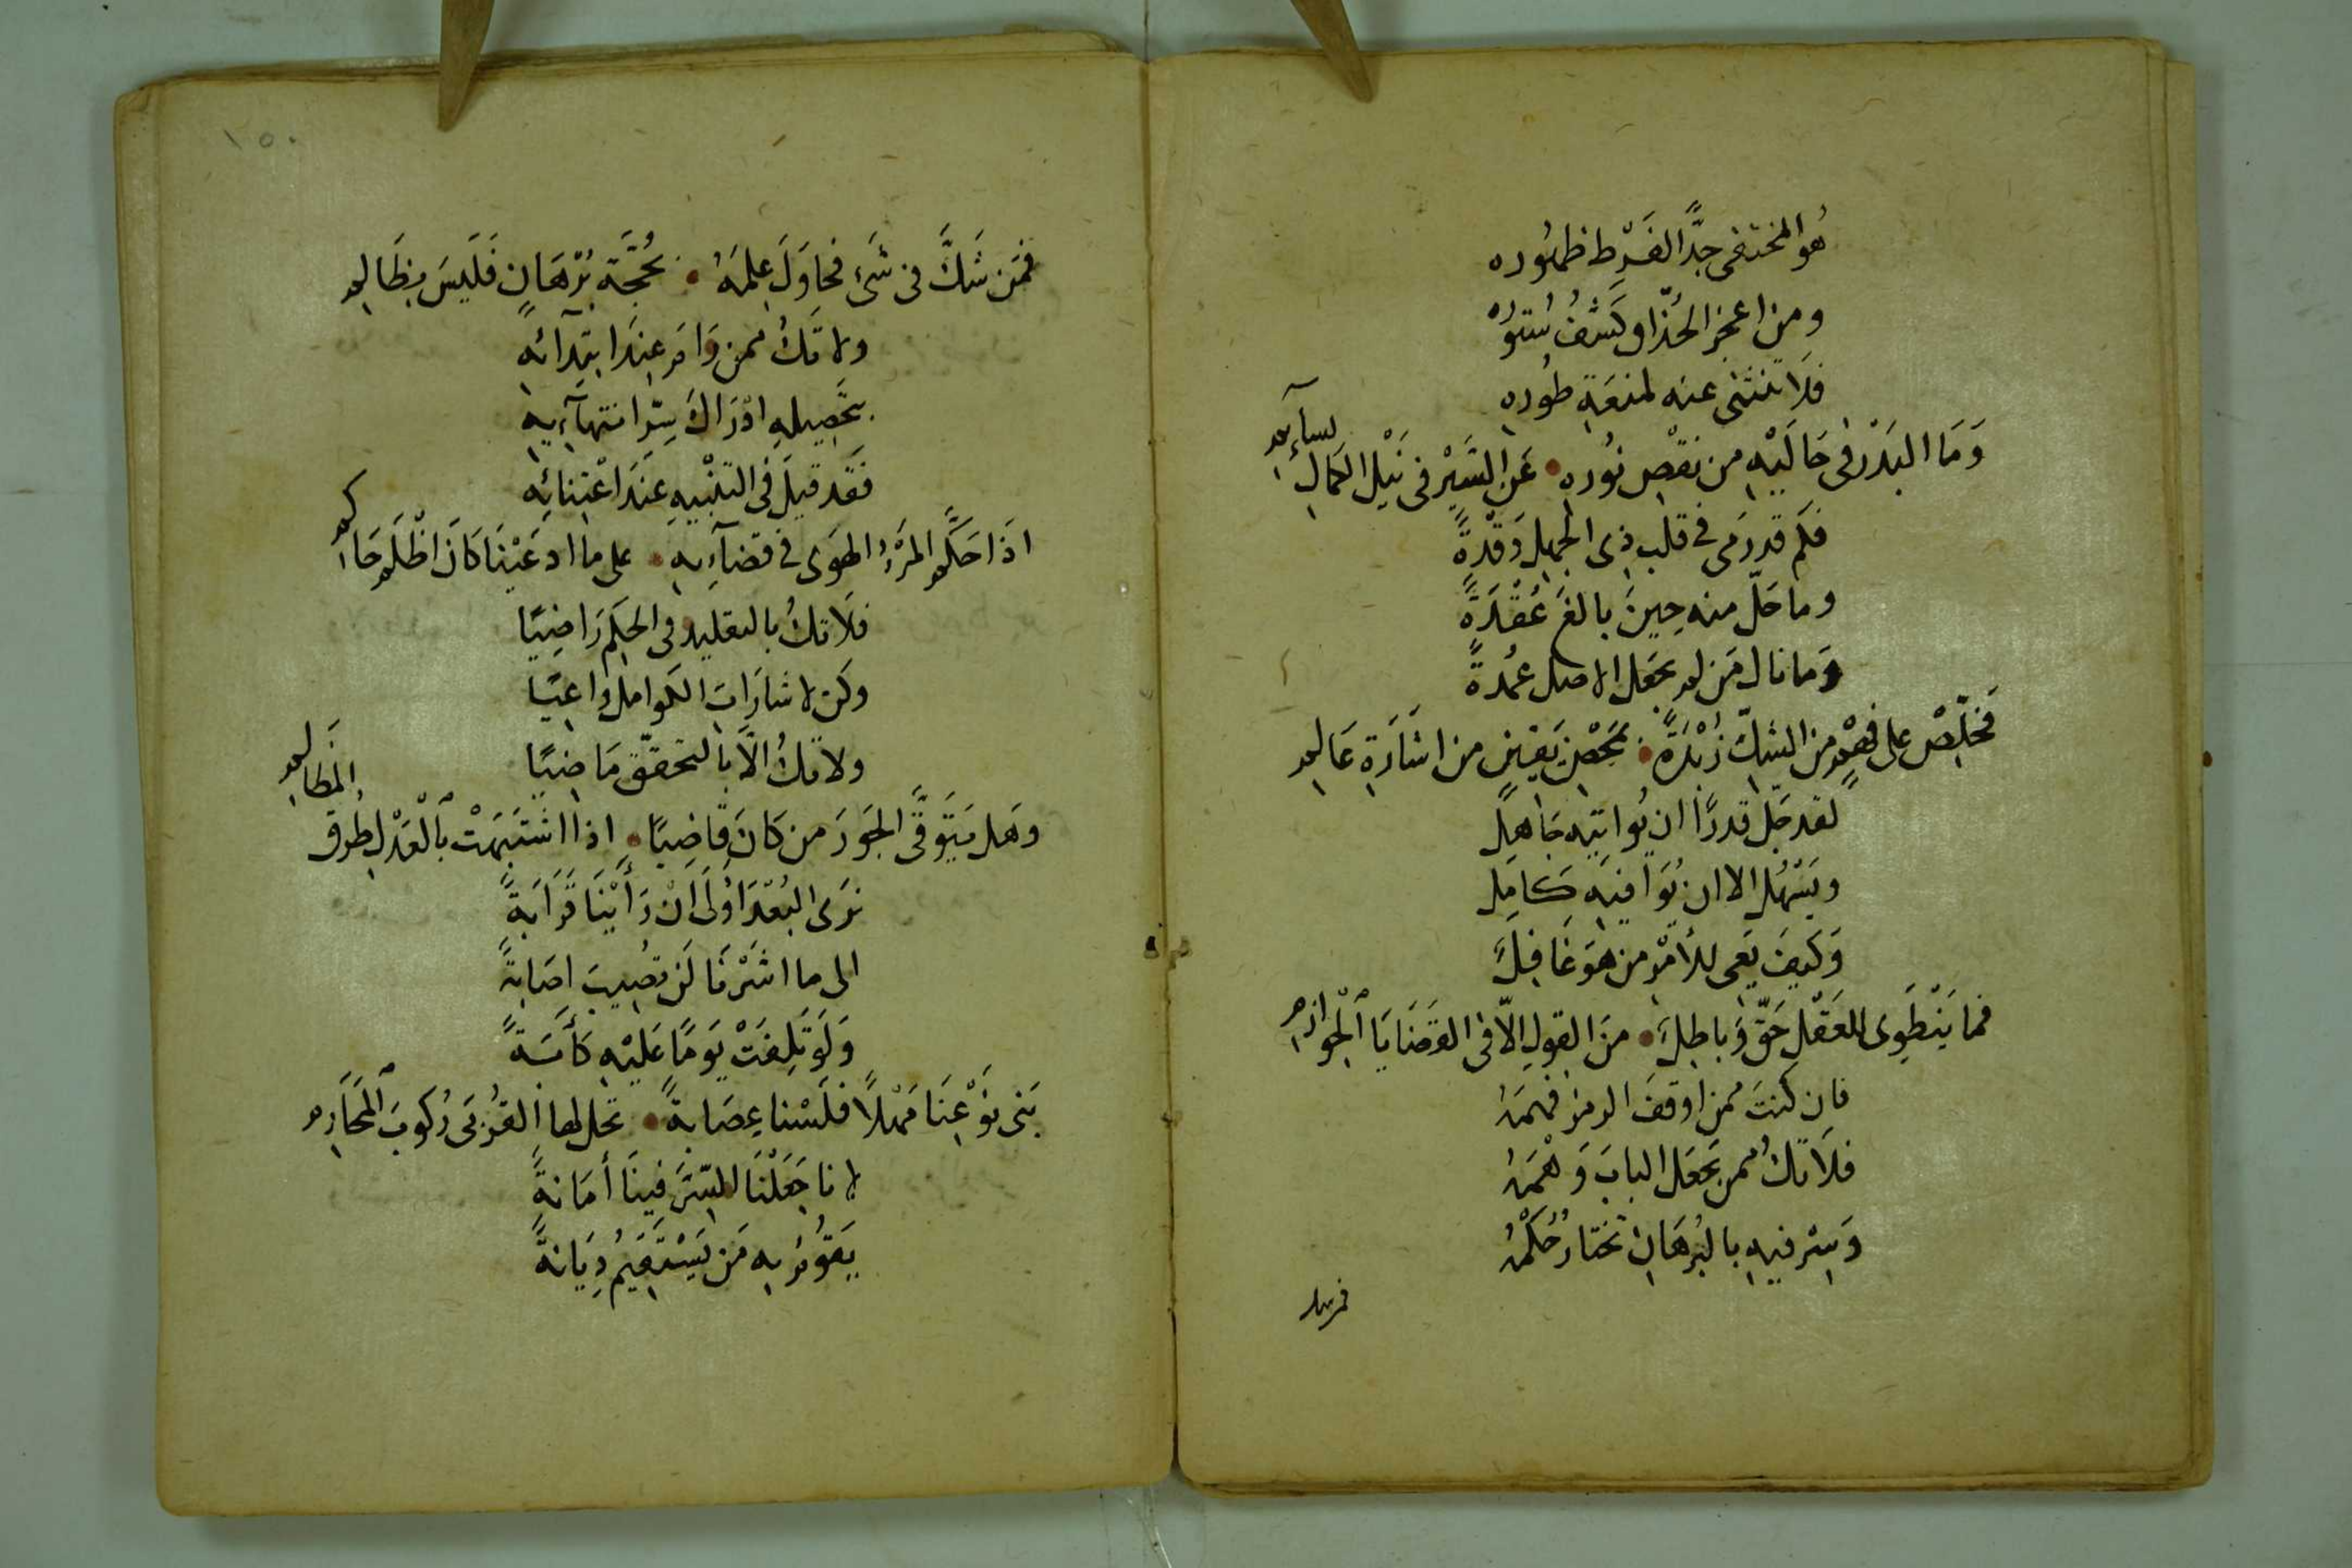 هُو المختفى جِدًّا لفَرْطِ ظهُوره
ومن اعجز الحُذّاق كَشفُ سُتورُه
فلَا تنثنى عنه لمنعَةِ طُورِهِ
وَمَا البَدْر فى حَالَيْهِ من نقصِ نُورِه • عَنِ السَّيْرِ فى نَيْل الكمالِ بسآئمِ
فَكم قد رَمى فى قلبِ ذى الجهلِ وَقْدةً
وما حَلّ منه حِينَ بالغَ عُقْدَةً
وَما نال مَن لم يجعَل الاصل عُمدةً
فَخَلِّصْ على فهمٍ من الشكّ زُبْدَةً • بمَحْضِ يَقينٍ من اشَارَةِ عَالِمِ
لقد جَلّ قدرًا ان يُواتيَه جَاهِل
ويَسْهُل الا ان يُوَافيَه كَامِل
وَكيفَ يَعى للأمْرِ من هوَ غَافِلُ
فما يَنْطَوِى للعَقْلِ حَقّ وَباطِلُ • منَ القولِ الّا فى القَضَايَا اْلجَوازمِ
فاِن كنتَ ممن اوقفَ الرمز فهمَهُ
فلَا تكُ ممن يَجعَل البابَ وَهْمَهُ
وَسِرْ فيهِ بالبُرهَانِ تختَارُ حُكْمَهُ
فمن شك
١٥٠
فمَن شَكَّ فى شَىءٍ فحاوَلَ عِلمَهُ • بحُجَّةِ بُرْهَانٍ فَلَيسَ بِظَالِمِ
ولا تَكُ ممن رَامَ عِنَدَ ابتِدآئهِ
بتحَصِيلِهِ ادْرَاكَ سِرّ انتهآءِيهِ
فَقَد قيلَ فى التنْبِيهِ عنَدَ اعْتِنائِه
اذَا حَكَّم المَرْءُ الهَوَى فى قضآءِيهِ • على ما ادعَيْنَا كَانَ اظْلَم حَاكمِ
فلَا تكُ بالتقليدِ فى الحكم رَاضِيًا
وكن لاشَارَاتِ الكوامل وَاعِيًا
ولا تكُ الّا بالتحقّقِ مَاضِيًا
وهَل يَتَوقَّى الجَورَ من كَانَ قَاضِيًا • اذا اشتَبَهَتْ بالْعَدْلِ طُرق المَظالِمِ
نرَى البُعْدَ اوْلَى اَنْ رَأيْنَا قَرَابةً
الى ما اشَرْنَا لَن تصُيبَ اِصَابةً
وَلَو تَلِفَتْ يَومًا عَليْهِ كَأسَةً
بَنى نوْعِنَا مَهْلًا فلَسْنا عِصَابةً • تحل لها القُرْبى رُكوبَ المَحَارِم
لانا جَعَلْنَا للسّرّ فينَا أمَانةً
يَقُومُ بهِ مَن يَسْتَقيمُ دِيَانةً